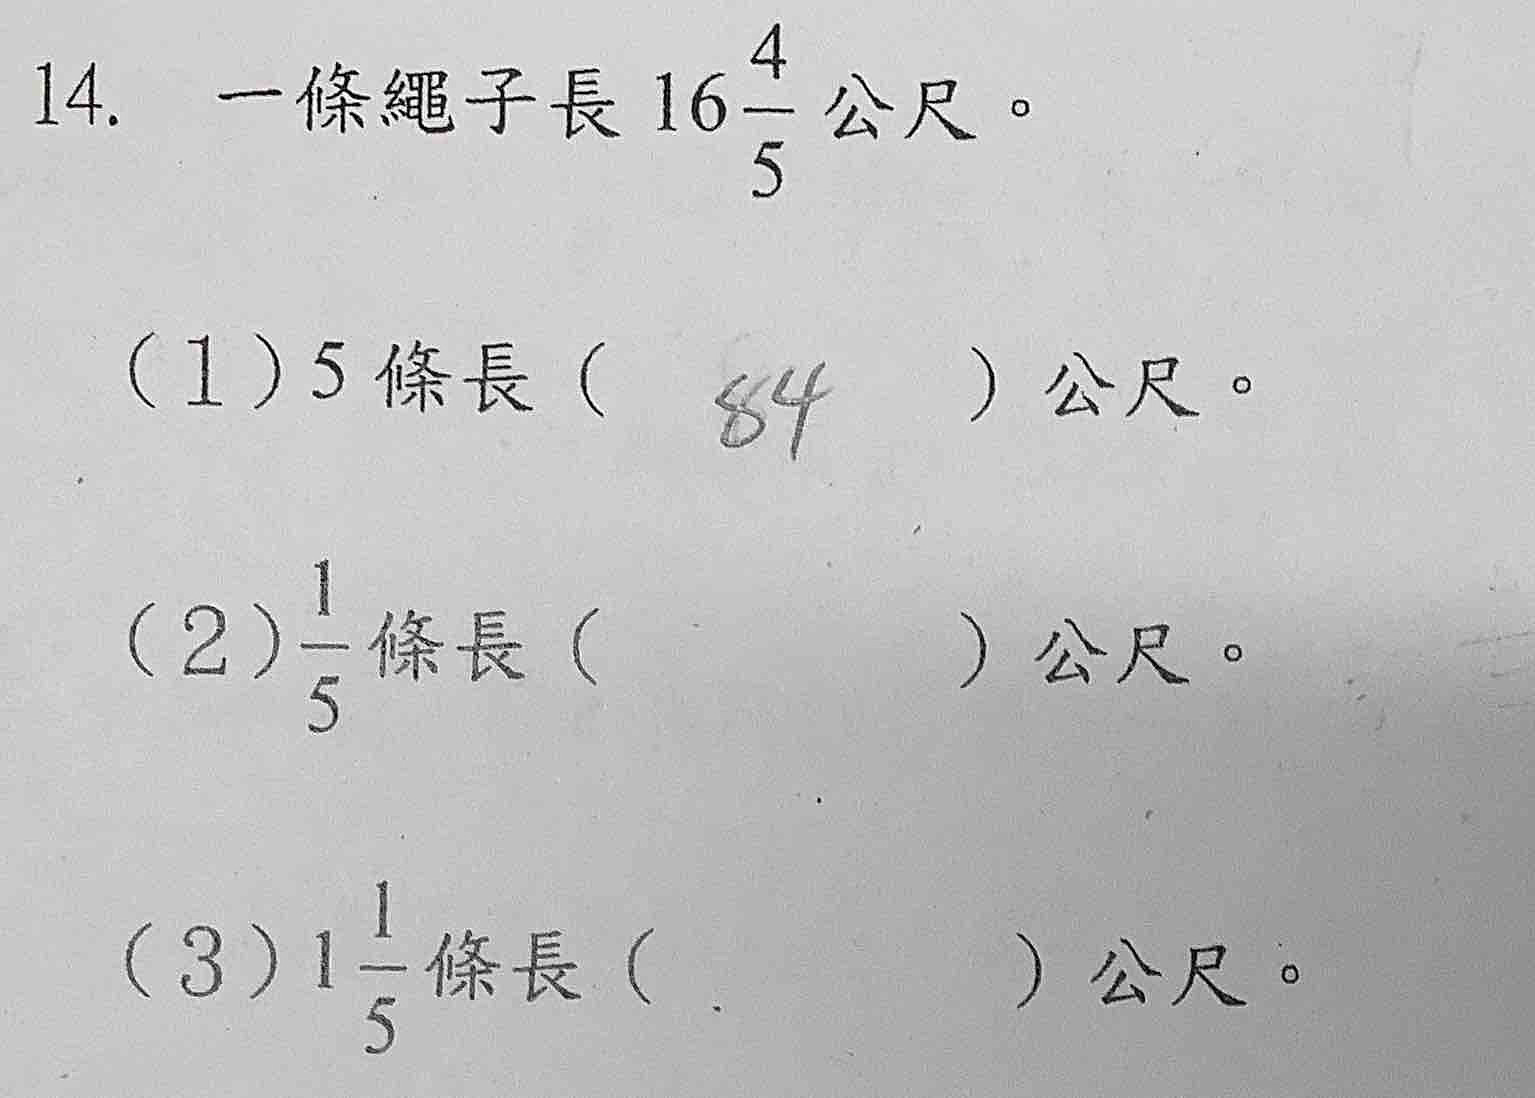 14. 一條繩子長 16 4/5 公尺。
(1) 5 條長 ( 84 ) 公尺。
(2) 1/5 條長 ( ) 公尺。
(3) 1 1/5 條長 ( ) 公尺。